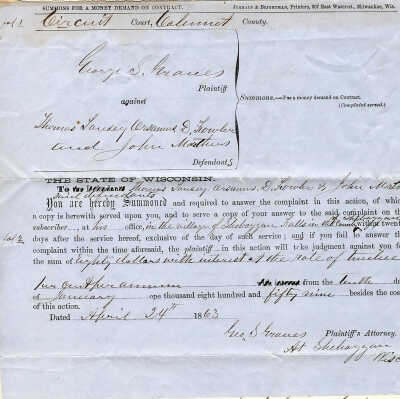 SUMMONS FOR A MONEY DEMAND ON CONTRACT.
Printers, 207 East Wisconsin, Milwaukee, Wis.
Circuit Court, Calumet County.
George S. Graves
Plaintiff
against
Thomas Arsamus D. Fowler
and John
Defendants
Summons.—For a money demand on Contract.
(Complaint served.)
THE STATE OF WISCONSIN.
To Thomas D. Fowler & John
said defendants
You are hereby Summoned and required to answer the complaint in this action, of which
a copy is herewith served upon you, and to serve a copy of your answer to the said complaint on the
subscriber at his office, in the village of Sheboygan Falls in twenty
days after the service hereof, exclusive of the day of such service; and if you fail to answer the
complaint within the time aforesaid, the plaintiff in this action will take judgment against you for
the sum of eighty dollars with interest at the rate of twelve
per cent per annum from the tenth day
of January one thousand eight hundred and fifty nine besides the costs
of this action.
Dated April 24th 1863
Geo. S. Graves Plaintiff's Attorney.
At Sheboygan